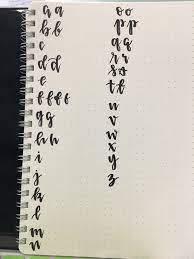 a a
b b
c
d d
e
f f f f
g g
h h
i
j
k
l
m
n
o o
p p
q q
r r
s s
t t
u
v
w
x
y
z